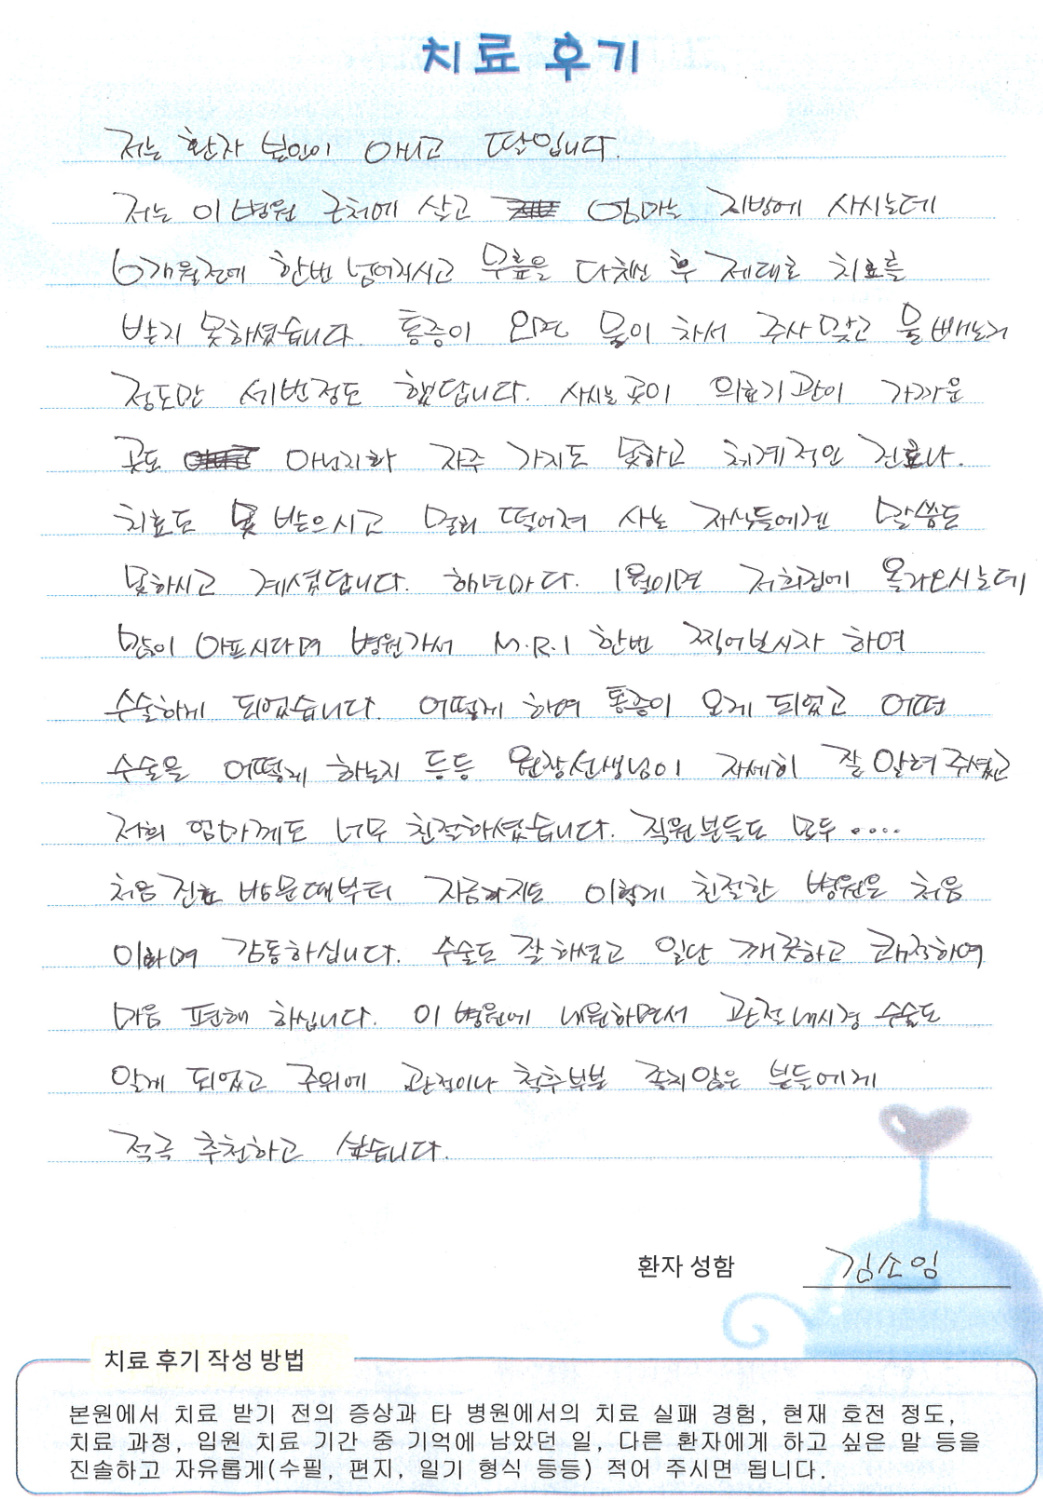 치료 후기
저는 환자 본인이 아니고 딸입니다.
저는 이 병원 근처에 살고 엄마는 지방에 사시는데
6개월전에 한번 넘어지시고 무릎을 다채신 후 제대로 치료를
받지 못하셨습니다. 통증이 오면 물이 차서 주사 맞고 물 빼는거
정도만 세번정도 했답니다. 사시는 곳이 의료기관이 가까운
곳도 아닌지라 자주 가지도 못하고 체계적인 진료나.
치료도 못 받으시고 멀리 떨어져 사는 자식들에겐 말씀도
못하시고 계셨답니다. 해년마다. 1월이면 저희집에 올라오시는데
많이 아프시다며 병원가서 M.R.I 한번 찍어보시자 하여
수술하게 되었습니다. 어떻게 하여 통증이 오게 되었고 어떤
수술을 어떻게 하는지 등등 원장선생님이 자세히 잘 알려주셨고
저희 엄마께도 너무 친절하셨습니다. 직원분들도 모두 ....
처음 진료 방문때부터 지금까지도 이렇게 친절한 병원은 처음
이라며 감동하십니다. 수술도 잘 하셨고 일단 깨끗하고 쾌적하여
마음 편해 하십니다. 이 병원에 내원하면서 관절내시경 수술도
알게 되었고 주위에 관절이나 척추부분 좋지않은 분들에게
적극 추천하고 싶습니다.
환자 성함 김소임
치료 후기 작성 방법
본원에서 치료 받기 전의 증상과 타 병원에서의 치료 실패 경험, 현재 호전 정도,
치료 과정, 입원 치료 기간 중 기억에 남았던 일, 다른 환자에게 하고 싶은 말 등을
진솔하고 자유롭게(수필, 편지, 일기 형식 등등) 적어 주시면 됩니다.